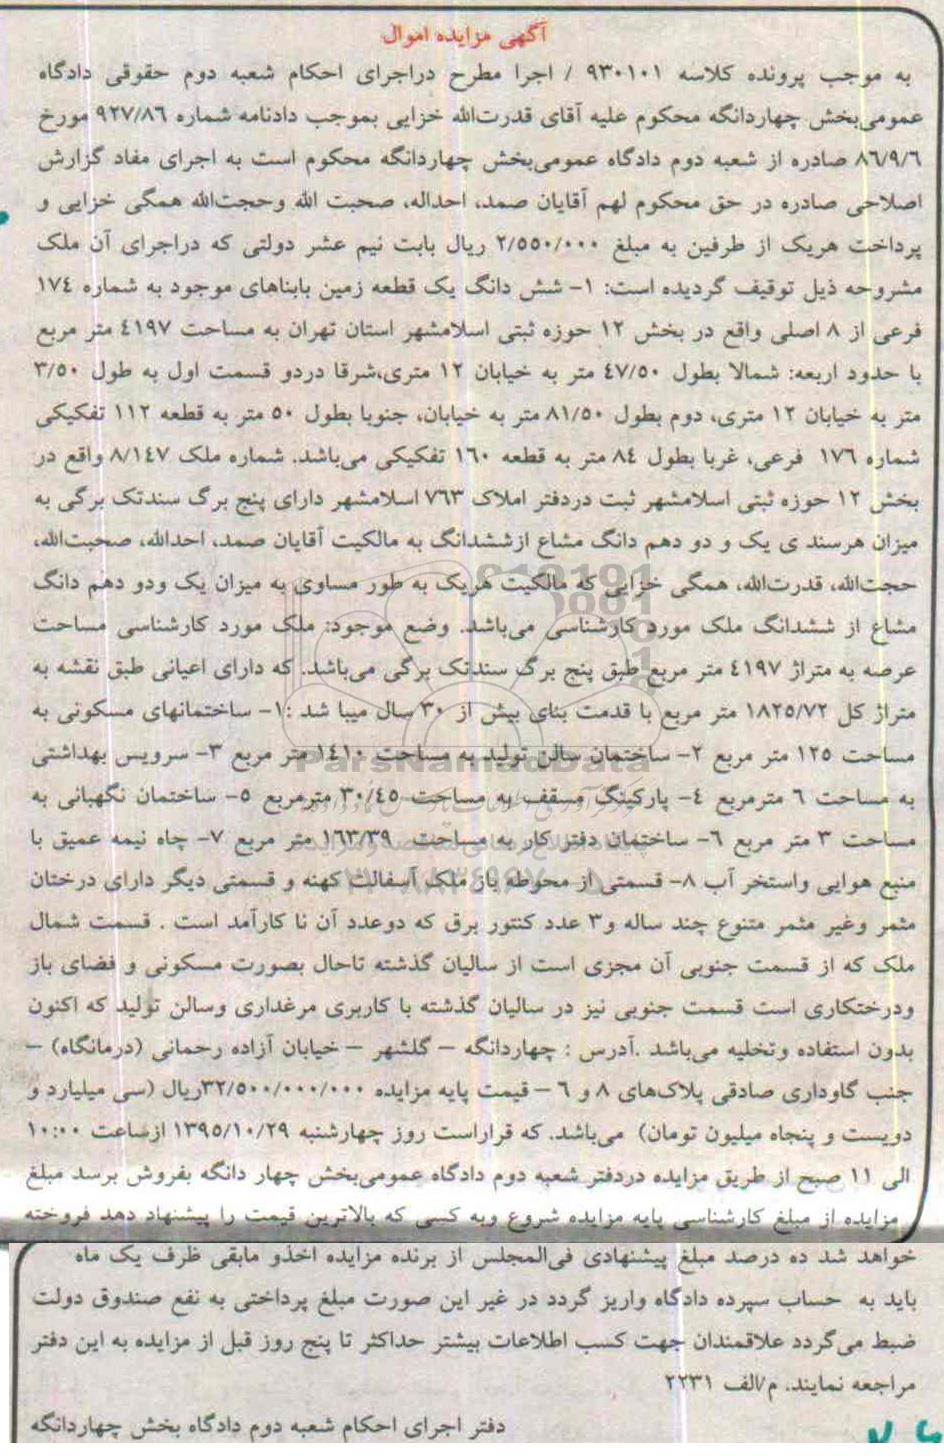 آگهی مزایده اموال
به موجب پرونده کلاسه ۹۳۰۱۰۱ / اجرا مطرح دراجرای احکام شعبه دوم حقوقی دادگاه
عمومی‌بخش چهاردانگه محکوم علیه آقای قدرت‌الله خزایی بموجب دادنامه شماره ۹۲۷/۸۶ مورخ
۸۶/۹/۶ صادره از شعبه دوم دادگاه عمومی‌بخش چهاردانگه محکوم است به اجرای مفاد گزارش
اصلاحی صادره در حق محکوم لهم آقایان صمد، احداله، صحبت الله وحجت‌الله همگی خزایی و
پرداخت هریک از طرفین به مبلغ ۲/۵۵۰/۰۰۰ ریال بابت نیم عشر دولتی که دراجرای آن ملک
مشروحه ذیل توقیف گردیده است: ۱- شش دانگ یک قطعه زمین بابناهای موجود به شماره ۱۷٤
فرعی از ۸ اصلی واقع در بخش ۱۲ حوزه ثبتی اسلامشهر استان تهران به مساحت ٤۱۹۷ متر مربع
با حدود اربعه: شمالا بطول ٤۷/۵۰ متر به خیابان ۱۲ متری،شرقا دردو قسمت اول به طول ۳/۵۰
متر به خیابان ۱۲ متری، دوم بطول ۸۱/۵۰ متر به خیابان، جنوبا بطول ۵۰ متر به قطعه ۱۱۲ تفکیکی
شماره ۱۷۶ فرعی، غربا بطول ۸٤ متر به قطعه ۱۶۰ تفکیکی می‌باشد. شماره ملک ۸/۱٤۷ واقع در
بخش ۱۲ حوزه ثبتی اسلامشهر ثبت دردفتر املاک ۷۶۳ اسلامشهر دارای پنج برگ سندتک برگی به
میزان هرسند ی یک و دو دهم دانگ مشاع ازششدانگ به مالکیت آقایان صمد، احدالله، صحبت‌الله،
حجت‌الله، قدرت‌الله، همگی خزایی که مالکیت هریک به طور مساوی به میزان یک ودو دهم دانگ
مشاع از ششدانگ ملک مورد کارشناسی می‌باشد. وضع موجود: ملک مورد کارشناسی مساحت
عرصه به متراژ ٤۱۹۷ متر مربع طبق پنج برگ سندتک برگی می‌باشد. که دارای اعیانی طبق نقشه به
متراژ کل ۱۸۲۵/۷۲ متر مربع با قدمت بنای بیش از ۳۰ سال میبا شد :۱- ساختمانهای مسکونی به
مساحت ۱۲۵ متر مربع ۲- ساختمان سالن تولید به مساحت ۱٤۱۰ متر مربع ۳- سرویس بهداشتی
به مساحت ۶ مترمربع ٤- پارکینگ مسقف به مساحت ۳۰/٤۵ مترمربع ۵- ساختمان نگهبانی به
مساحت ۳ متر مربع ۶- ساختمان دفتر کار به مساحت ۱۶۳/۳۹ متر مربع ۷- چاه نیمه عمیق با
منبع هوایی واستخر آب ۸- قسمتی از محوطه باز ملک آسفالت کهنه و قسمتی دیگر دارای درختان
مثمر وغیر مثمر متنوع چند ساله و۳ عدد کنتور برق که دوعدد آن نا کارآمد است . قسمت شمال
ملک که از قسمت جنوبی آن مجزی است از سالیان گذشته تاحال بصورت مسکونی و فضای باز
ودرختکاری است قسمت جنوبی نیز در سالیان گذشته با کاربری مرغداری وسالن تولید که اکنون
بدون استفاده وتخلیه می‌باشد .آدرس : چهاردانگه – گلشهر – خیابان آزاده رحمانی (درمانگاه) –
جنب گاوداری صادقی پلاک‌های ۸ و ۶ – قیمت پایه مزایده ۳۲/۵۰۰/۰۰۰/۰۰۰ریال (سی میلیارد و
دویست و پنجاه میلیون تومان) می‌باشد. که قراراست روز چهارشنبه ۱۳۹۵/۱۰/۲۹ ازساعت ۱۰:۰۰
الی ۱۱ صبح از طریق مزایده دردفتر شعبه دوم دادگاه عمومی‌بخش چهار دانگه بفروش برسد مبلغ
مزایده از مبلغ کارشناسی پایه مزایده شروع وبه کسی که بالاترین قیمت را پیشنهاد دهد فروخته
خواهد شد ده درصد مبلغ پیشنهادی فی‌المجلس از برنده مزایده اخذو مابقی ظرف یک ماه
باید به حساب سپرده دادگاه واریز گردد در غیر این صورت مبلغ پرداختی به نفع صندوق دولت
ضبط می‌گردد علاقمندان جهت کسب اطلاعات بیشتر حداکثر تا پنج روز قبل از مزایده به این دفتر
مراجعه نمایند. م/الف ۲۲۳۱
دفتر اجرای احکام شعبه دوم دادگاه بخش چهاردانگه
ParsNamadData